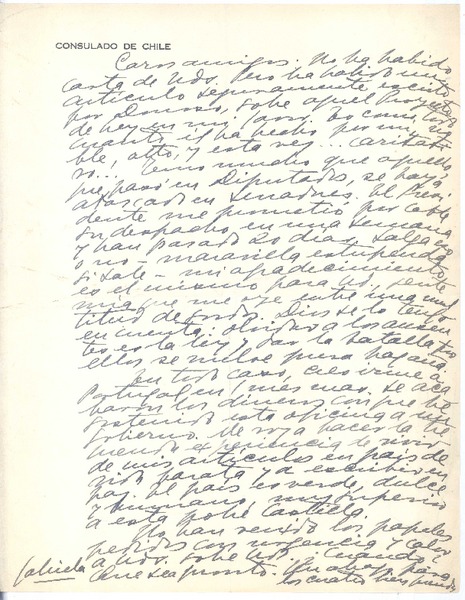 CONSULADO DE CHILE
Caros amigos: No ha habido
carta de Uds. Pero ha habido un
artículo seguramente escrito
por Donoso, sobre aquel Proyecto
de ley en mi favor. Es como todo
cuanto él ha hecho por mí, no
ble, alto, y esta vez... caritati
vo... Temo mucho que aquello,
que pasó en Diputados, se haya
atascado en Senadores. El Presi
dente me prometió por cable
su despacho en una semana
y han pasado 20 días. Salga
o no - maravilla estupenda
si sale - mi agradecimiento
es el mismo para Ud., gente
mía que me oye entre una mul
titud de sordos. Dios se lo tenga
en cuenta: olvidar a los ausen
tes es la ley y dar la batalla por
ellos se vuelve pura hazaña.
En todo caso, creo irme a
Portugal en 1 mes más. Se aca
baron los dineros con que he
sostenido esta oficina a mi
Gobierno. Me voy a hacer la tre
menda experiencia de vivir
de mis artículos en país de
vida barata y a escribir en
paz. El país es verde, dulce
y humano, muy superior
a esta pobre Castilla.
No han venido los papeles
pedidos con urgencia y cabo
a Uds. sobre Ud. Cuando
Que sea pronto. Un abrazo para
los cuatro bien
Gabriela